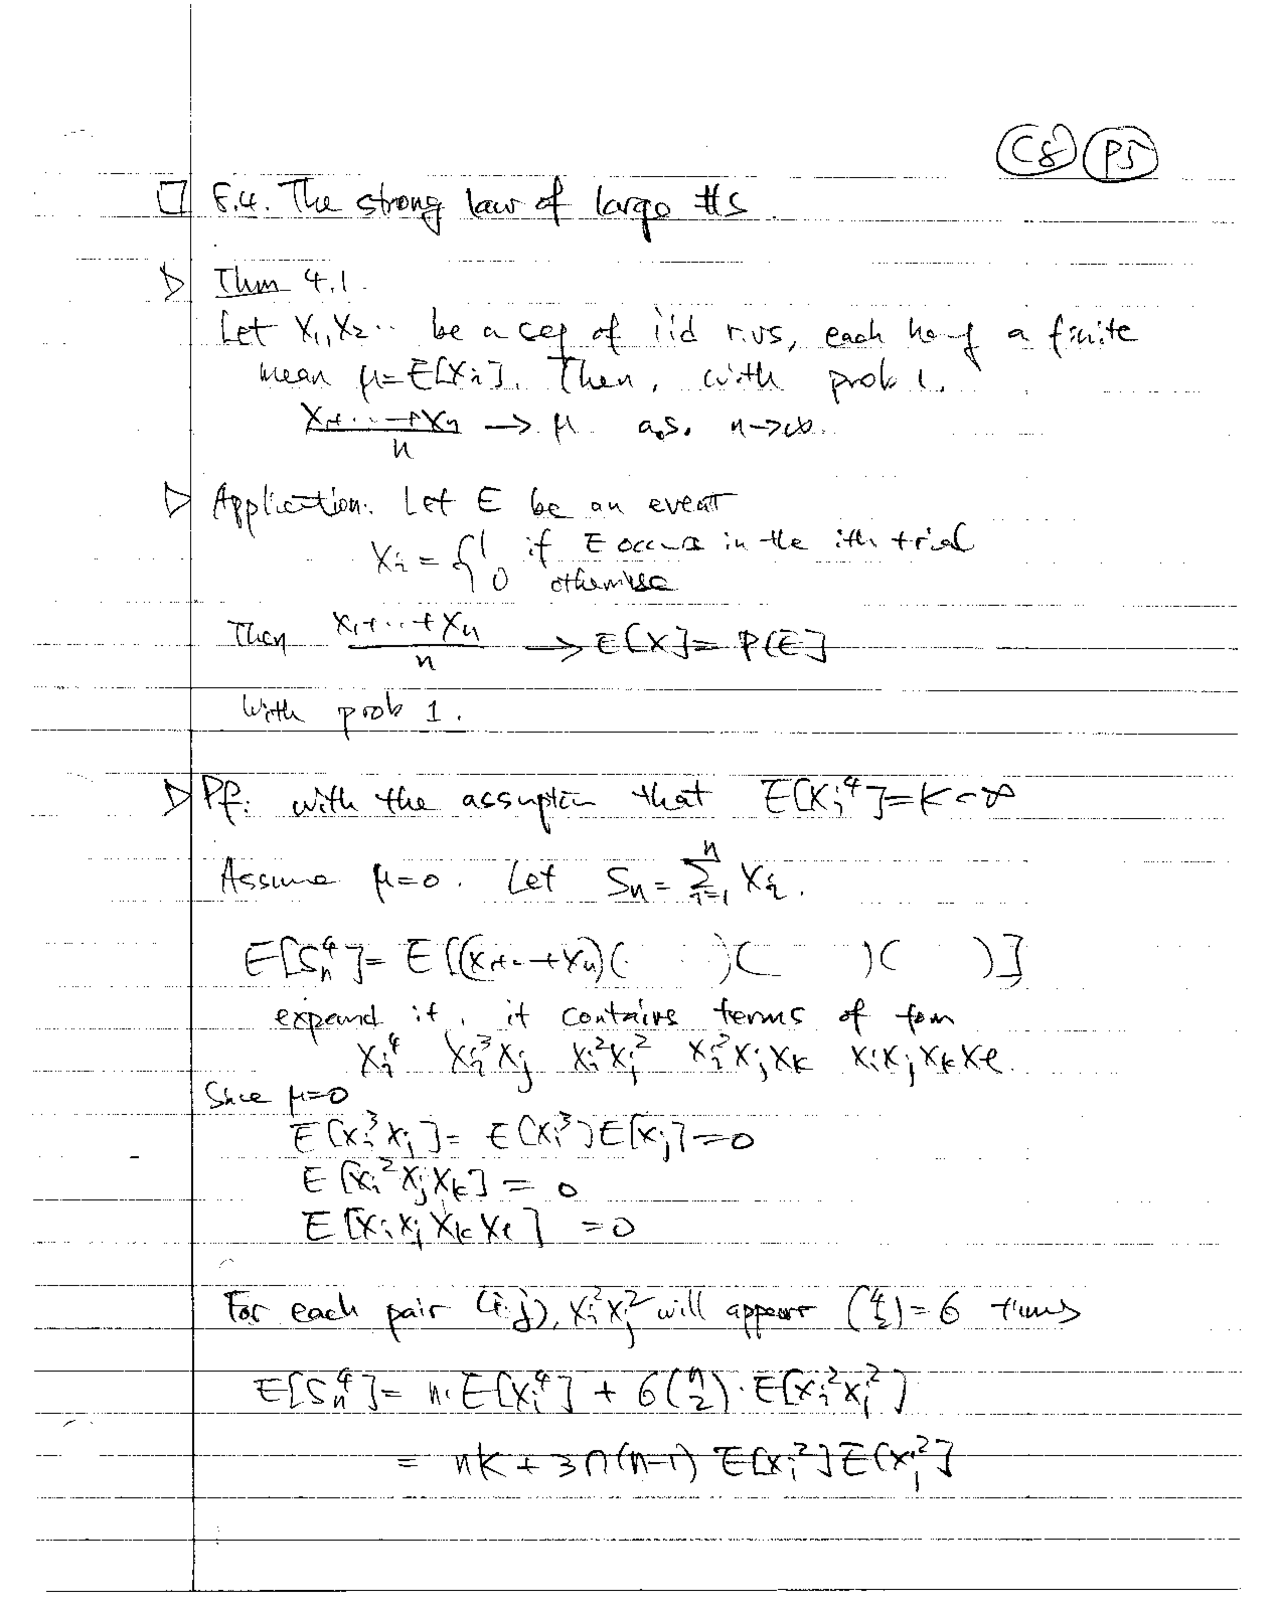 C8 P5
□ 8.4. The strong law of large #s.
▷ Thm 4.1.
Let X₁, X₂ ·· be a seq of iid r.vs, each havg a finite
mean μ=E[Xi]. Then, with prob 1.
(X₁+···+Xn)/n → μ a.s. n→∞.
▷ Application. Let E be an event
Xi = { 1 if E occurs in the ith trial
0 otherwise
Then (X₁+··+Xn)/n → E[X]= P[E]
with prob 1.
▷ Pf: with the assuption that E[Xi⁴]=K<∞
Assume μ=0. Let Sn = Σ_{i=1}^{n} Xi.
E[Sn⁴]= E[(X₁+··+Xn)( )( )( )]
expand it, it contains terms of form
Xi⁴ Xi³Xj Xi²Xj² Xi²XjXk XiXjXkXl.
Since μ=0
E[Xi³Xj]= E[Xi³]E[Xj]=0
E[Xi²XjXk] = 0
E[XiXjXkXl] =0
For each pair (i.j), Xi²Xj² will appear (4 2)=6 times
E[Sn⁴]= n·E[Xi⁴] + 6(n 2)·E[Xi²Xj²]
= nK+3n(n-1) E[Xi²]E[Xj²]